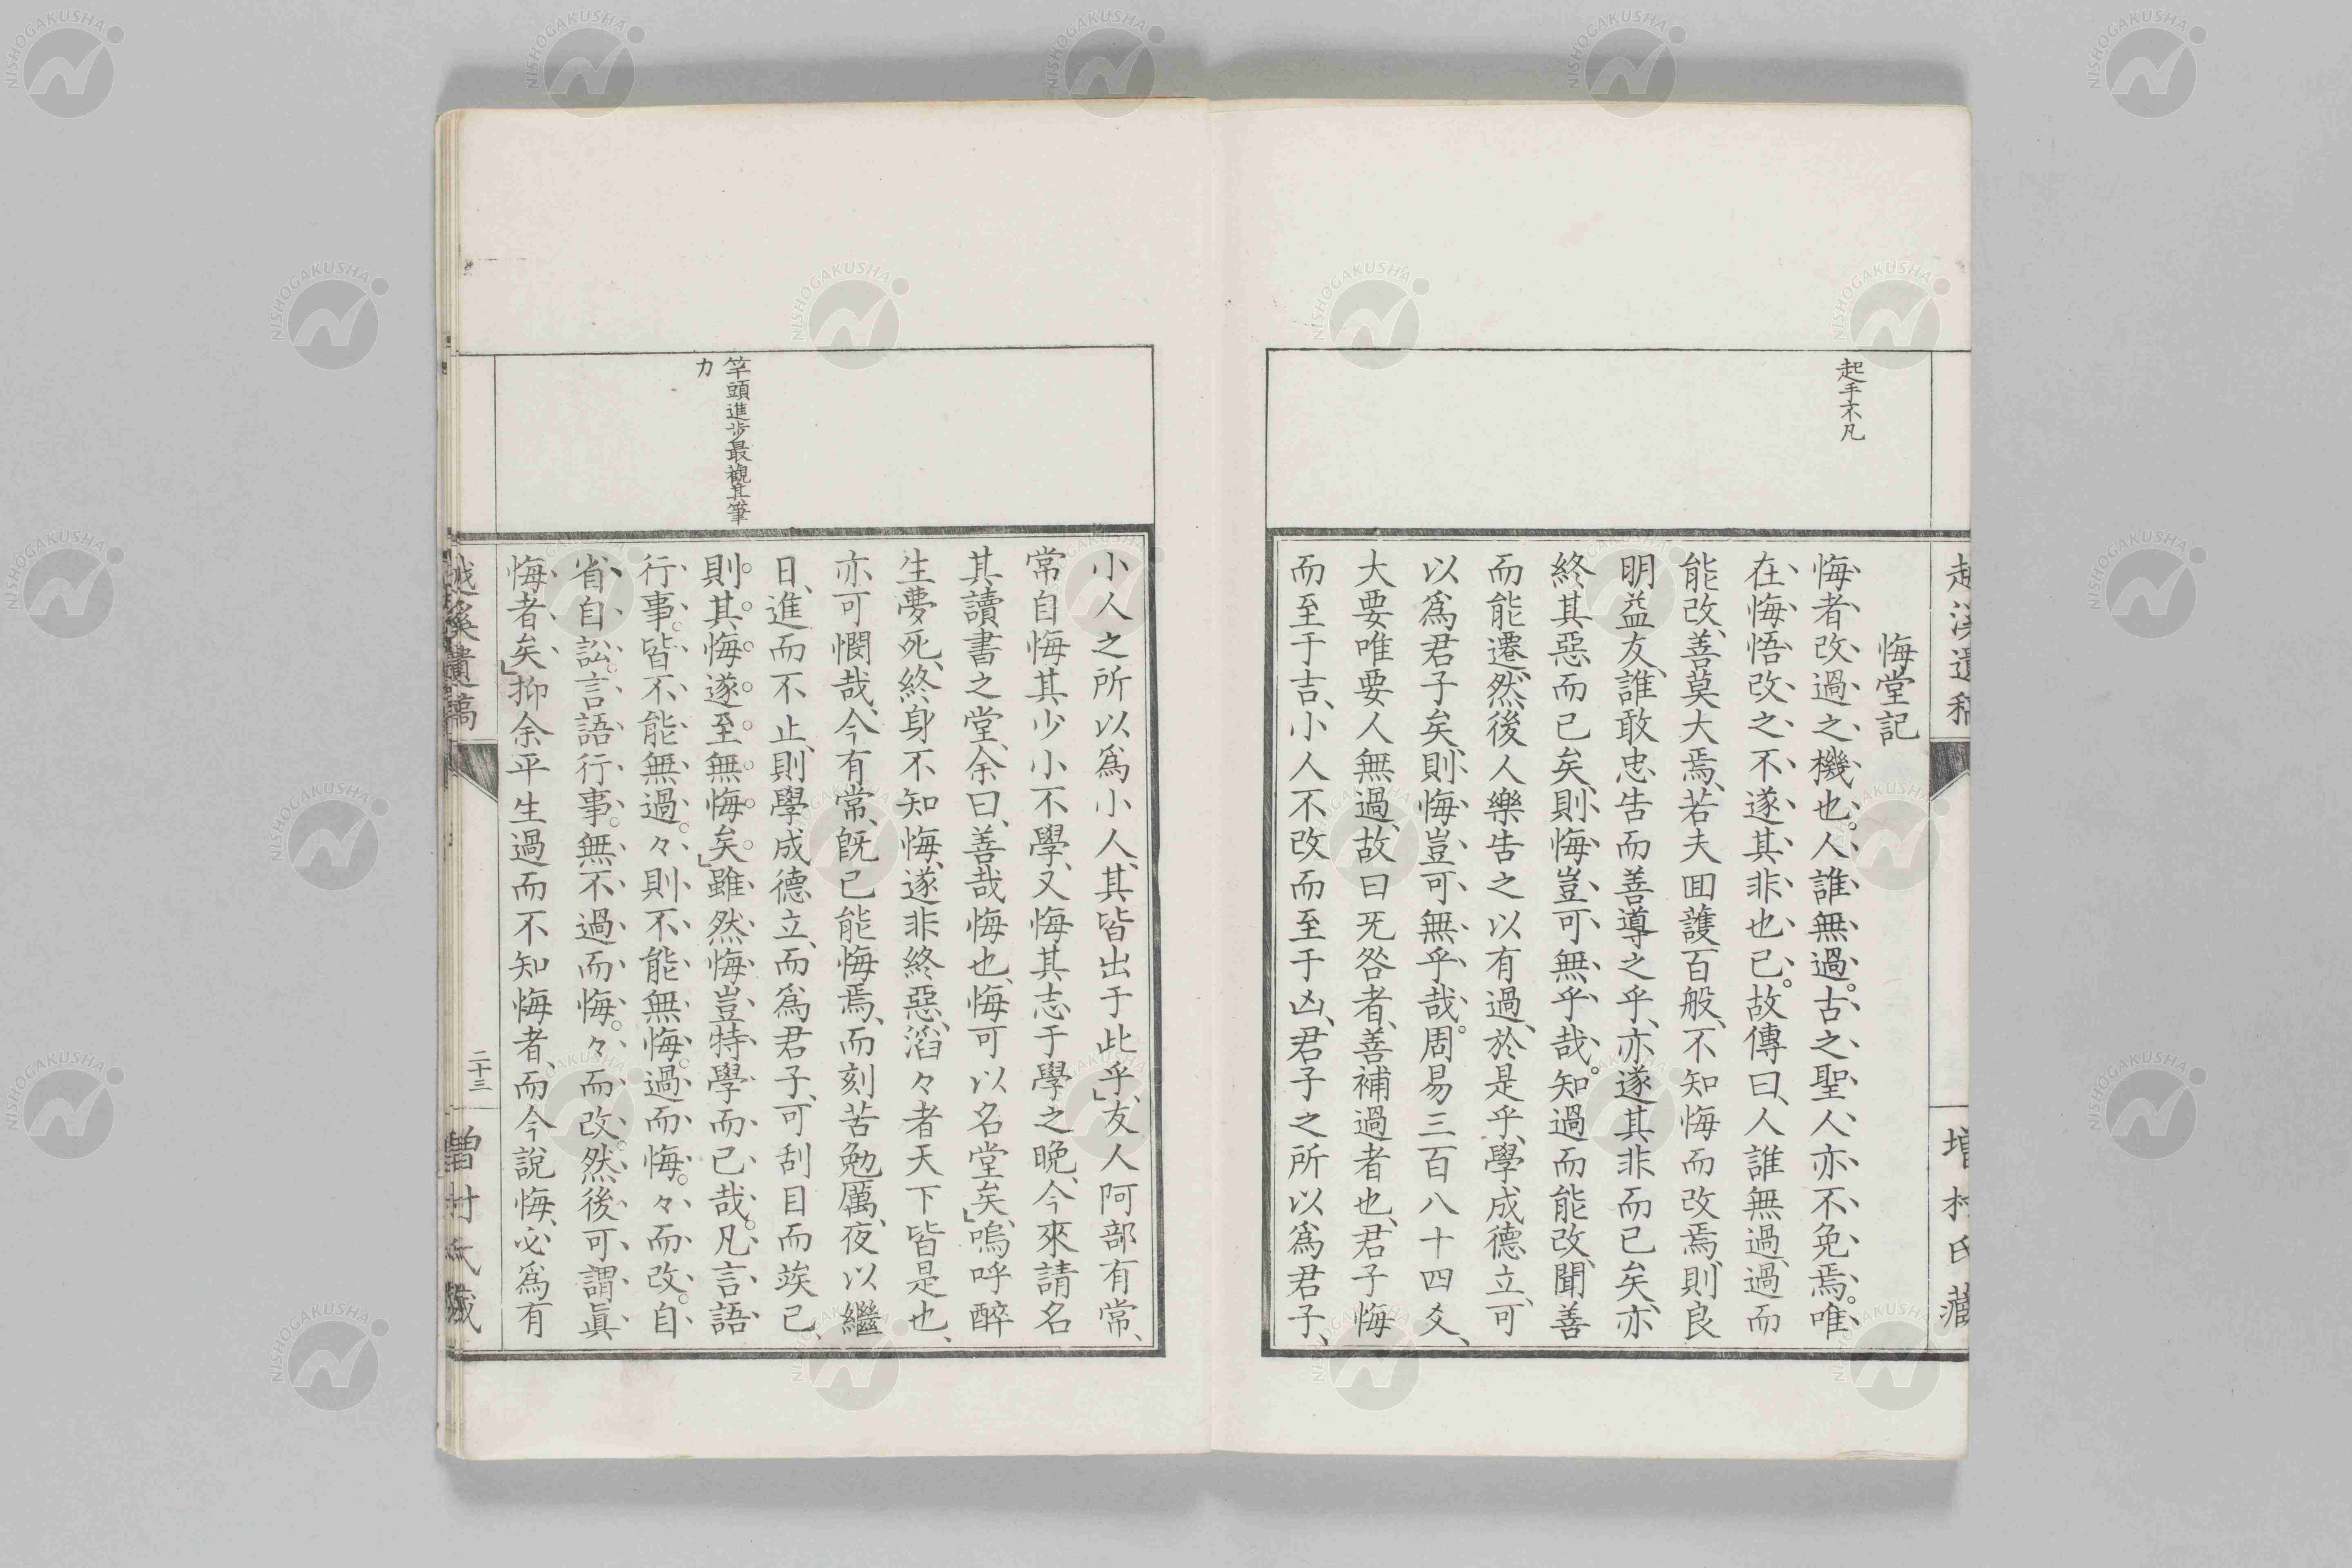 起手不凡
悔堂記
悔者、改過之機也。人誰無過。古之聖人亦不免焉。唯
在悔悟改之、不遂其非也已。故傳曰、人誰無過、過而
能改、善莫大焉、若夫回護百般、不知悔而改焉、則良
明益友、誰敢忠告而善導之乎、亦遂其非而已矣、亦
終其惡而已矣、則悔豈可無乎哉。知過而能改、聞善
而能遷、然後人樂告之以有過、於是乎、學成德立、可
以爲君子矣、則悔豈可無乎哉。周易三百八十四爻、
大要唯要人無過、故曰无咎者、善補過者也、君子悔
而至于吉、小人不改而至于凶、君子之所以爲君子、
小人之所以爲小人、其皆出于此乎、」友人阿部有常、
常自悔其少小不學、又悔其志于學之晩、今來請名
其讀書之堂、余曰、善哉悔也、悔可以名堂矣、」嗚呼醉
生夢死、終身不知悔、遂非終惡、滔々者天下皆是也、
亦可憫哉、今有常、既已能悔焉、而刻苦勉厲、夜以繼
日、進而不止、則學成德立、而爲君子、可刮目而竢已、
則其悔遂至無悔矣」雖然悔豈特學而已哉。凡言語
行事。皆不能無過。々則不能無悔。過而悔。々而改。自
省自訟。言語行事。無不過而悔。々而改。然後可謂眞
悔者矣、」抑余平生過而不知悔者、而今說悔、必爲有
竿頭進步最觀其筆
力
越溪遺稿
二十三
增村氏藏
NISHOGAKUSHA